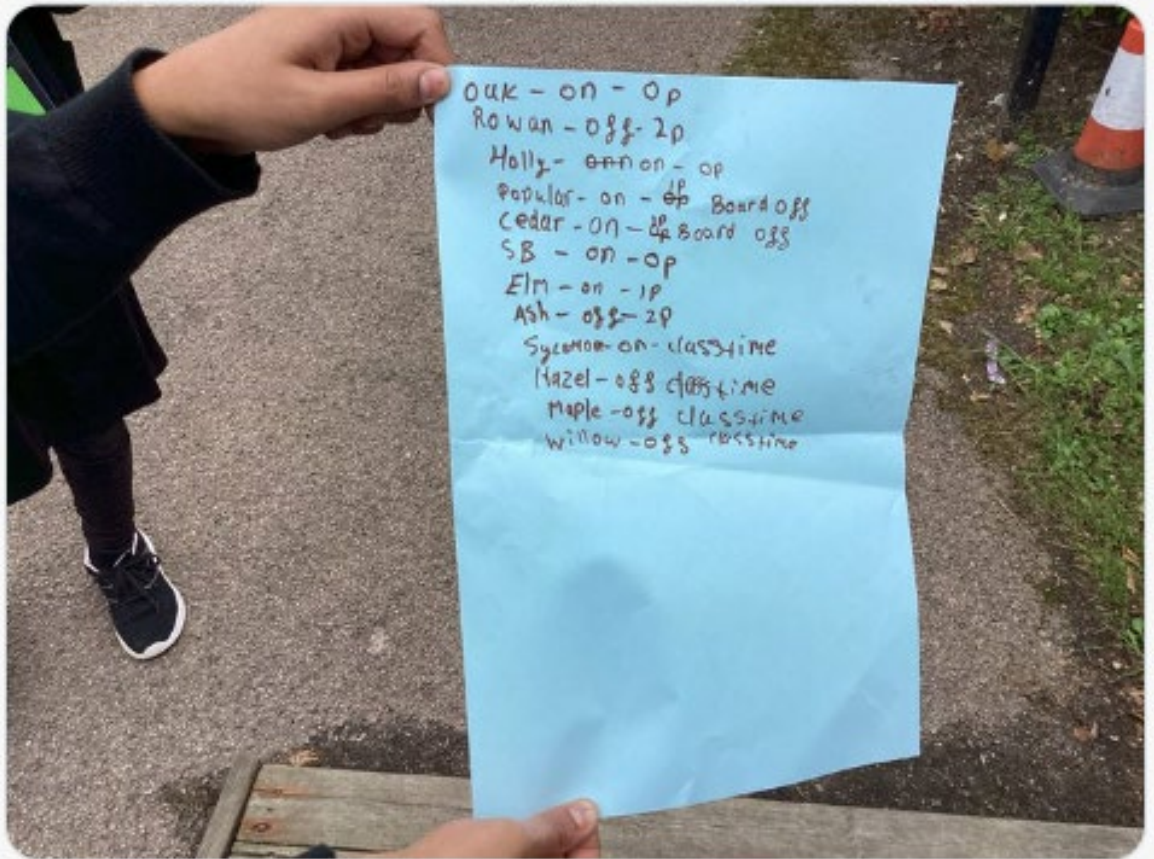 Oak - on - 0p
Rowan - off - 2p
Holly - on - 0p
Popular - on - 1p Board off
Cedar - on - Board off
SB - on - 0p
Elm - on - 1p
Ash - off - 2p
Sycamore - on - classtime
Hazel - off classtime
Maple - off classtime
Willow - off classtime